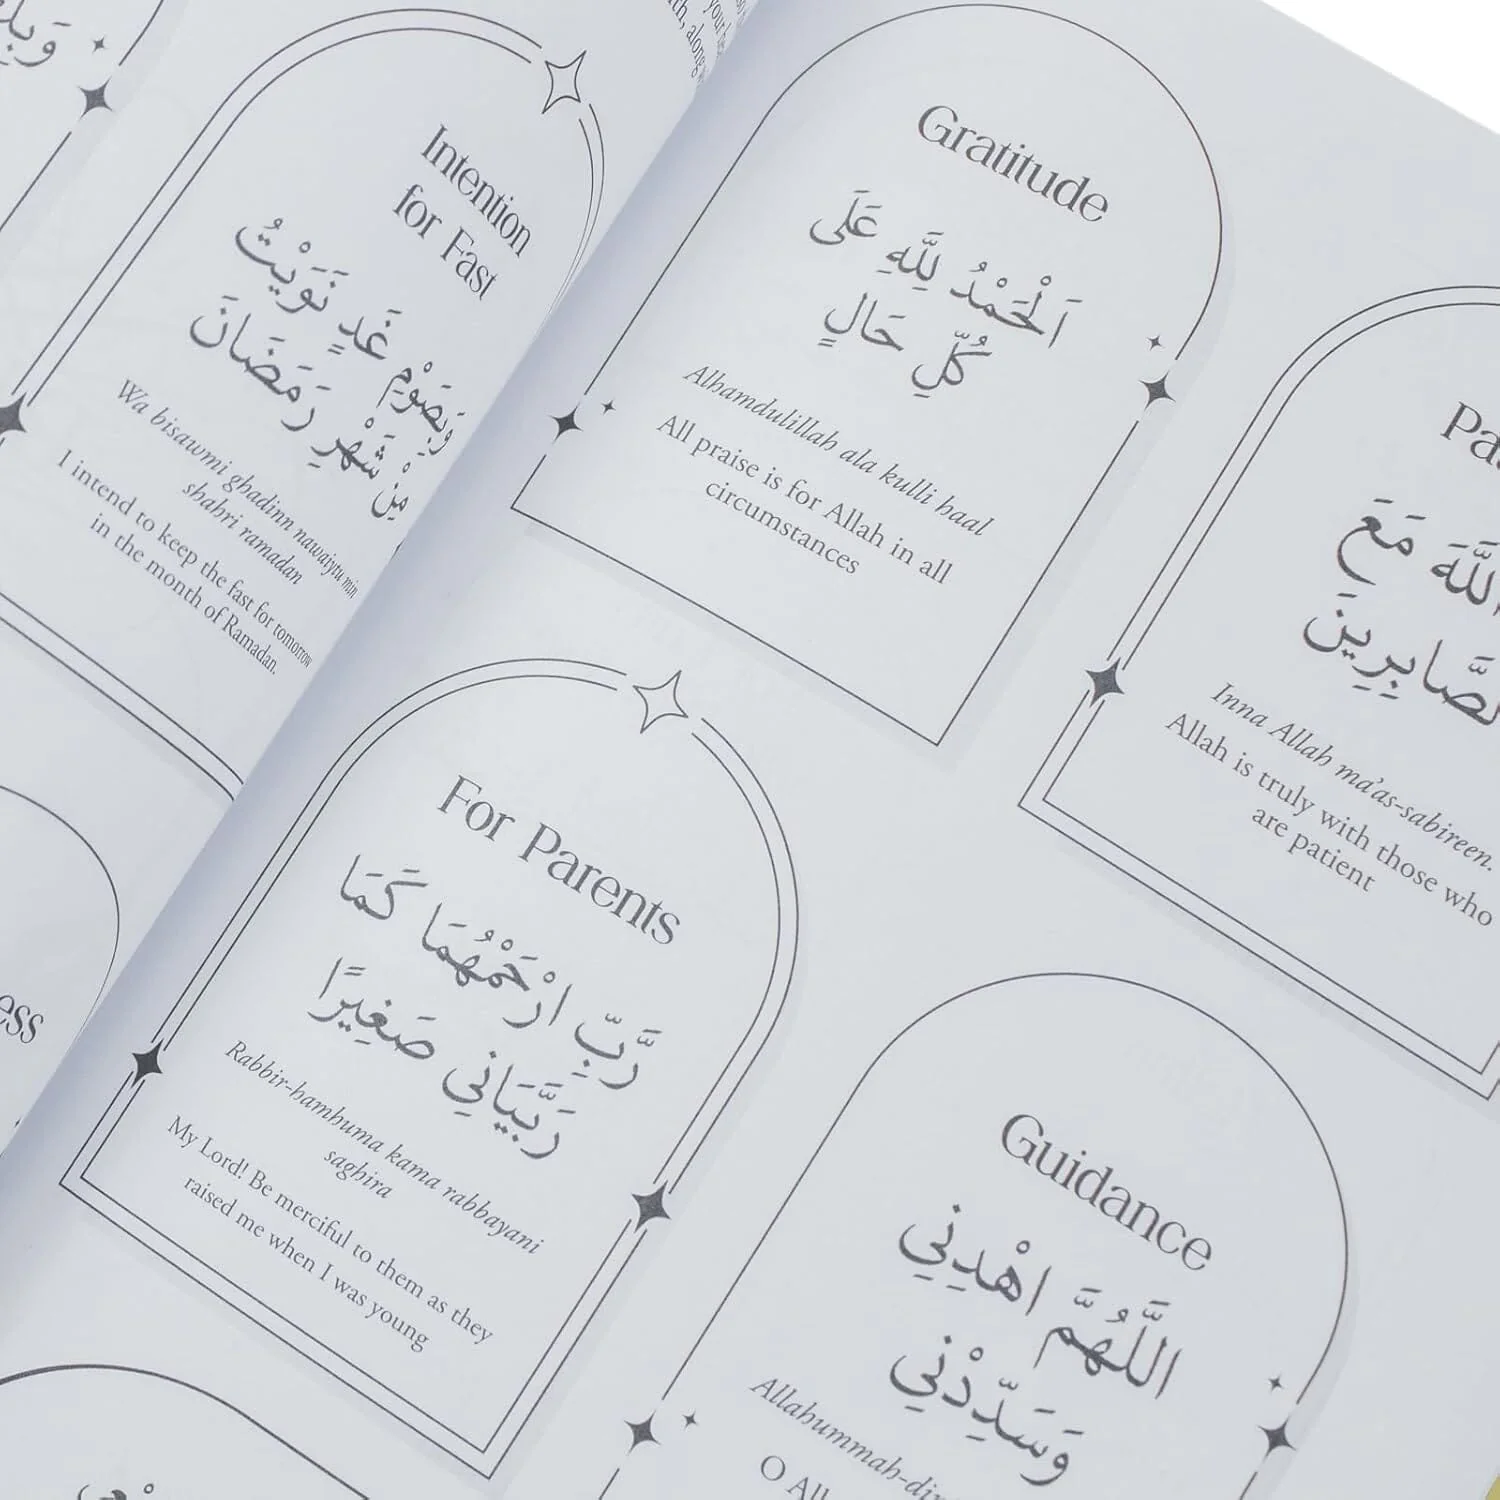 Intention
for Fast
وَبِصَوْمِ غَدٍ نَوَيْتُ
مِنْ شَهْرِ رَمَضَانَ
Wa bisawmi ghadinn nawaiytu min
shahri ramadan
I intend to keep the fast for tomorrow
in the month of Ramadan.
Gratitude
اَلْحَمْدُ لِلَّهِ عَلَى
كُلِّ حَالٍ
Alhamdulillah ala kulli haal
All praise is for Allah in all
circumstances
مَعَ
Inna Allah ma'as-sabireen.
Allah is truly with those who
are patient
For Parents
رَّبِّ ارْحَمْهُمَا كَمَا
رَبَّيَانِي صَغِيرًا
Rabbir-hamhuma kama rabbayani
saghira
My Lord! Be merciful to them as they
raised me when I was young
Guidance
اللَّهُمَّ اهْدِنِي
وَسَدِّدْنِي
O